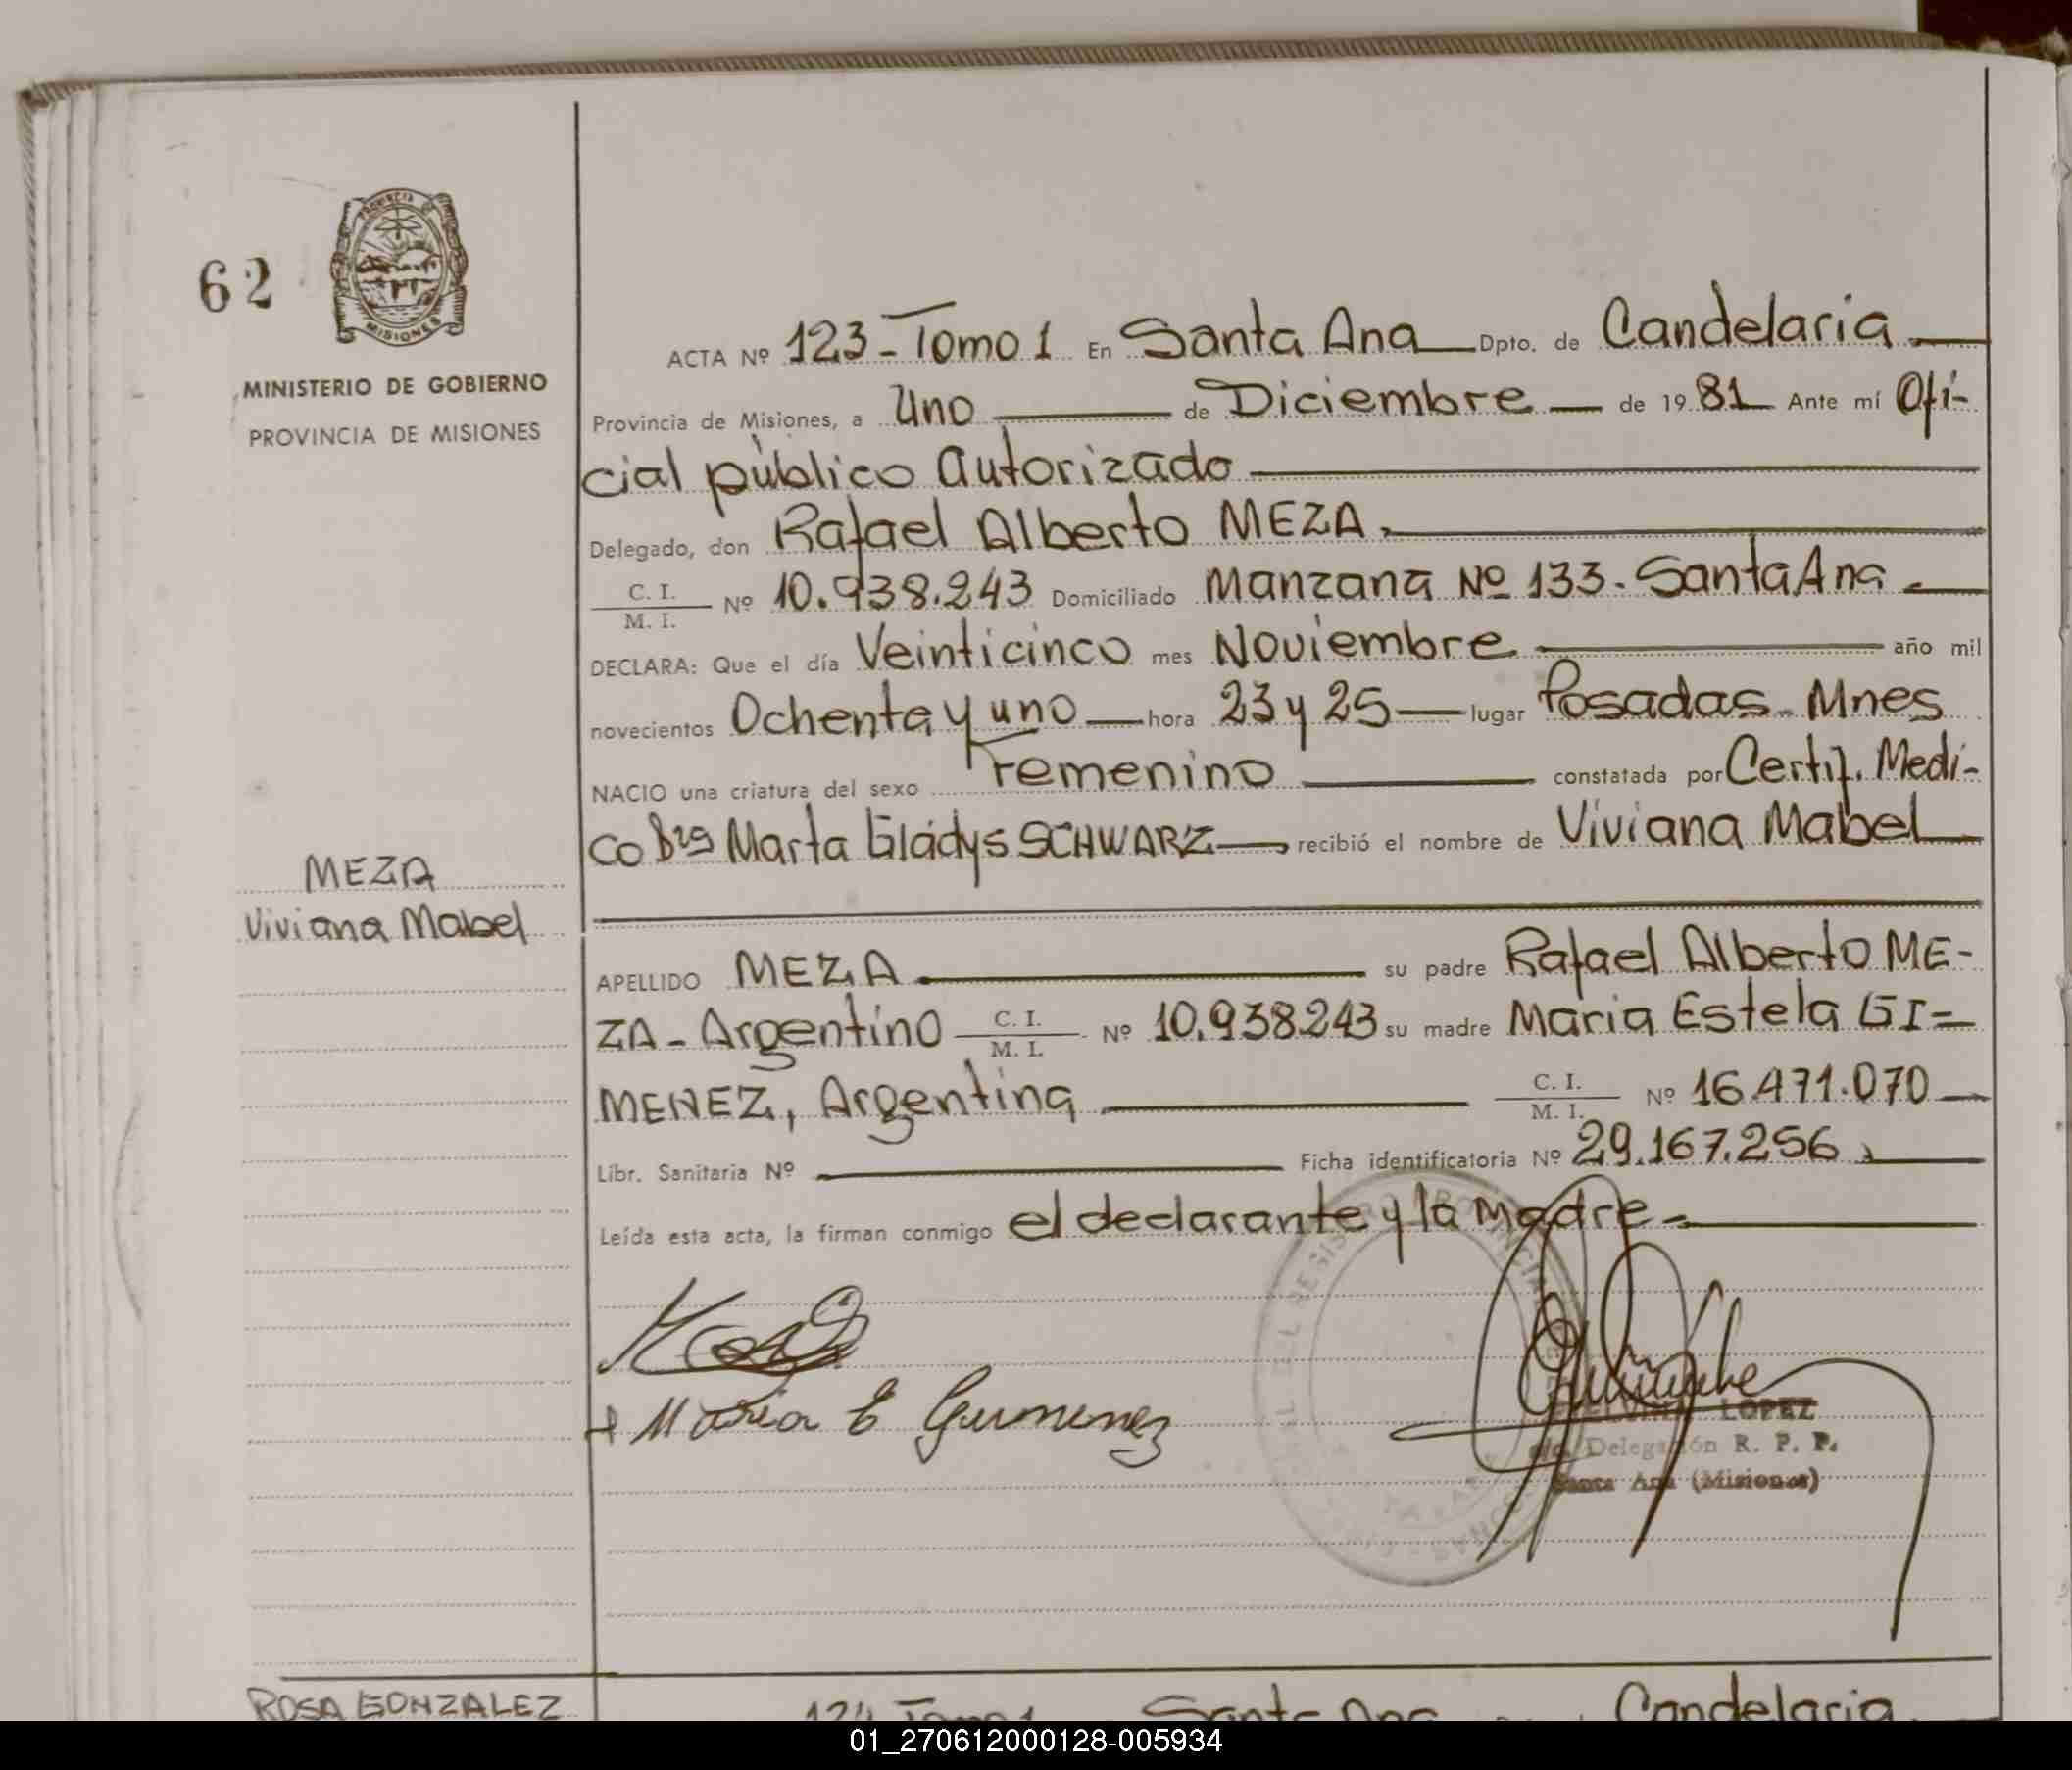 62
MISIONES
MINISTERIO DE GOBIERNO
PROVINCIA DE MISIONES
ACTA Nº 123-Tomo 1 En Santa Ana Dpto. de Candelaria
Provincia de Misiones, a Uno de Diciembre de 1981 Ante mí Ofi-
cial público Autorizado
Delegado, don Rafael Alberto MEZA,
C. I.
M. I. Nº 10.938.243 Domiciliado Manzana Nº 133. Santa Ana
DECLARA: Que el día Veinticinco mes Noviembre año mil
novecientos Ochenta y uno hora 23 y 25 lugar Posadas - Mnes
NACIO una criatura del sexo Femenino constatada por Certif. Medi-
co Marta Gladys SCHWARZ recibió el nombre de Viviana Mabel
MEZA
Viviana Mabel
APELLIDO MEZA su padre Rafael Alberto ME-
ZA - Argentino C. I. M. I. Nº 10.938243 su madre Maria Estela GI=
MENEZ, Argentina C. I. M. I. Nº 16.471.070
Libr. Sanitaria Nº Ficha identificatoria Nº 29.167.256
Leída esta acta, la firman conmigo el declarante y la Madre
Maria E Gimenez
LOPEZ
Delegación R. P. P.
Santa Ana (Misiones)
ROSA GONZALEZ
124 Tomo 1 Santa Ana Candelaria
01_270612000128-005934